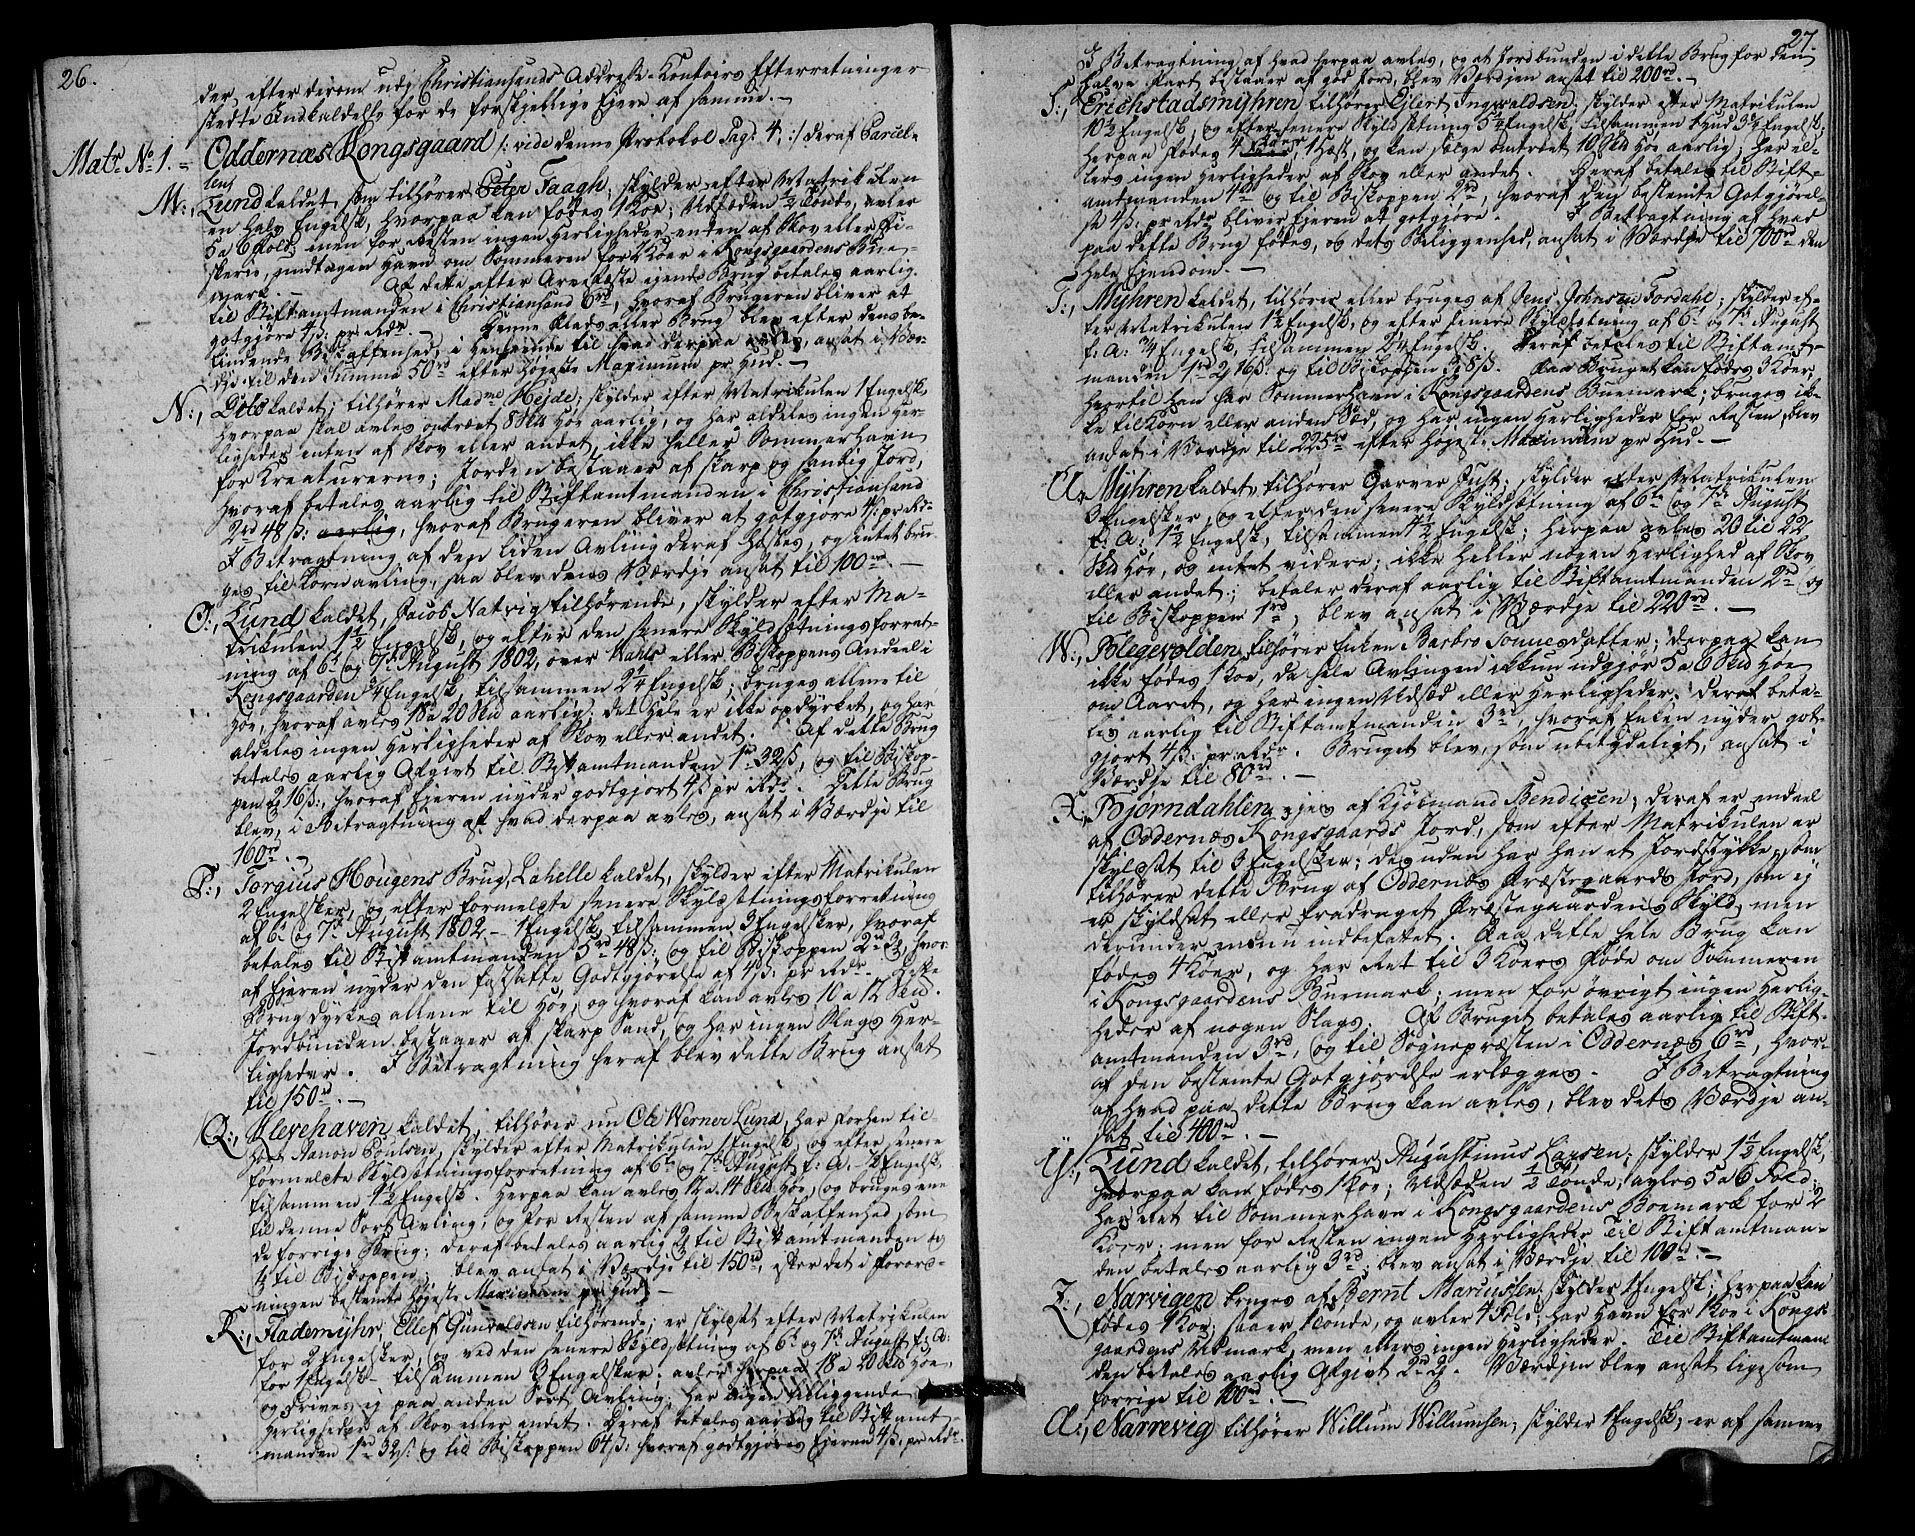 26.
der, efter derom udj Christiansands Addresse-Kontoirs Efterretninger
skedte Indkaldelse for de forskjellige Ejere af samme. —
Matr. No 1. = Oddernæs Kongsgaard /: vide denne Protokol Pag: 4, :/ deraf Parcel-
len
M:, Lund kaldet, som tilhører Peter Taagh; skylder efter Matrikulen
en halv Engelsk, hvorpaa kan fødes 1 Koe; Udsæden ½ Tønde, avler
5 a 6 Fold; men for Resten ingen Herligheder enten af Skov eller Fi-
skerie, undtagen Havn om Sommeren for 2 Køer i Kongsgaardens Bue-
mark. — Af dette efter Arvefæste ejende Brug betales aarlig
til Stiftamtmanden i Christiansand 6rd, hvoraf Brugeren bliver at
gotgjøre 4ß pr Rdr. — Denne Plads eller Brug blev efter dens be-
findende Beskaffenhed, i Henseende til hvad derpaa avles, ansat i Vær-
die til den Summa 50rd efter højeste Maximum pr Hud. —
N:, Dito kaldet, tilhører Madme Hejde; skylder efter Matrikulen 1 Engelsk,
hvorpaa skal avles omtræt 8 Skd Høe aarlig, og har aldeles ingen Her-
ligheder enten af Skov eller andet, ikke heller Sommerhavn
for Kreaturerne; Jorden bestaaer af skarp og sandig Jord,
hvoraf betales aarlig til Stiftamtmanden i Christiansand
2rd 48 ß: aarlig, hvoraf Brugeren bliver at gotgjøre 4ß: pr Rd:
I Betragtning af den liden Avling deraf høstes, og intet bru-
ges til Kornavling, saa blev dens Værdje ansat til 100rd. —
O:, Lund kaldet, Jacob Natvig tilhørende, skylder efter Ma-
trikulen 1½ Engelsk, og efter den senere Skyldsætningsforret-
ning af 6te og 7de August 1802, over Karls eller Biskoppens Andeel i
Kongsgaarden ¾ Engelsk, tilsammen 2¼ Engelsk; bruges allene til
Høe, hvoraf avles 18 a 20 Skd aarlig; det Hele er ikke opdyrket, og har
aldeles ingen Herligheder af Skov eller andet. Af dette Brug
betales aarlig Afgivt til Stiftamtmanden 1rd 32ß, og til Biskop-
pen 16ß:, hvoraf Ejeren nyder godtgjort 4ß pr Rdr. Dette Brug
blev, i Betragtning af hvad derpaa avles, ansat i Værdje til
160rd. —
P:, Torgius Hougens Brug, Lahelle kaldet, skylder efter Matrikulen
2 Engelsker, og efter formeldte senere Skyldsætningsforretning
af 6te og 7de August 1802, — 1 Engelsk, tilsammen 3 Engelsker, hvoraf
betales til Stiftamtmanden 5rd 48ß: og til Biskoppen 2rd, hvor-
af Ejeren nyder den fastsatte Godtgjørelse af 4ß: pr Rdr. Dette
Brug dyrkes allene til Høe, og hvoraf kan avles 10 a 12 Skd.
Jordbunden bestaaer af skarp Sand, og har ingen Slags Her-
ligheder. I Betragtning heraf blev dette Brug ansat
til 150rd. —
Q:, Klevehaven kaldet, tilhører nu Ole Werner Lund, har forhen til-
hørt Aanon Poulsen, skylder efter Matrikulen 1 Engelsk, og efter senere
formeldte Skyldsætningsforretning af 6te og 7de August f: A. ½ Engelsk,
tilsammen 1½ Engelsk. Herpaa kan avles 12 a 14 Skd Høe, og bruges ene
til denne Sort Avling, og for Resten af samme Beskaffenhed som
de forrige Brug; deraf betales aarlig til Stiftamtmanden og
til Biskoppen; blev ansat i Værdje til 150rd, efter det i Forord-
ningen bestemte højeste Maximum pr Hud. —
R:, Flademyhr, Ellef Gunvaldsen tilhørende; er skyldsat efter Matrikulen
for 2 Engelsker, og ved den senere Skyldsætning af 6te og 7de August f: A:
for 1 Engelsk — tilsammen 3 Engelsker; avler herpaa 18 a 20 Skd Høe,
og drives ej paa anden Sort Avling; har ingen tilliggende
Herligheder af Skov eller andet. Deraf betales aarlig til Stiftamt-
manden 1rd 32ß: og til Biskoppen 64ß: hvoraf godtgjøres Ejeren 4ß: pr Rdr.
27.
I Betragtning af hvad herpaa avles, og at Jordbunden i dette Brug for den
halve Part bestaaer af god Jord, blev Værdjen ansat til 200rd. —
S:, Erichstadsmyhren tilhører Ejlert Ingvaldsen; skylder efter Matrikulen
10½ Engelsk, og efter senere Skyldsætning 5¼ Engelsk, tilsammen 1 Hud 3¾ Engelsk;
herpaa fødes 4 Køer, 1 Hest, og kan sælge omtræt 10 Skd Høe aarlig; har el-
lers ingen Herligheder af Skov eller andet. Deraf betales til Stift-
amtmanden 4rd og til Biskoppen 2rd, hvoraf den bestemte Gotgjørel-
se 4ß, pr Rdr bliver Ejeren at gotgjøre. I Betragtning af hvad
paa dette Brug fødes, og dets Beliggenhed, ansat i Værdje til 700rd den
hele Ejendom. —
T:, Myhren kaldet, tilhører eller bruges af Jens Johnsen Fordahl; skylder ef-
ter Matrikulen 1½ Engelsk, og efter senere Skyldsætning af 6te og 7de August
f: A: ¾ Engelsk, tilsammen 2¼ Engelsk. Deraf betales til Stiftamt-
manden 1rd 16ß: og til Biskoppen 8ß. Paa Bruget kan fødes 3 Køer,
hvortil han har Sommerhavn i Kongsgaardens Buemark; bruges ik-
ke til Korn eller anden Sæd, og har ingen Herligheder for Resten; blev
ansat i Værdje til 225rd efter højeste Maximum pr Hud. —
U:, Myhren kaldet, tilhører Garver Just; skylder efter Matrikulen
3 Engelsker, og efter den senere Skyldsætning af 6te og 7de August
f: A: 1½ Engelsk, tilsammen 4½ Engelsk; herpaa avles 20 til 22
Skd Høe, og intet videre; ikke heller nogen Herlighed af Skov
eller andet; betaler deraf aarlig til Stiftamtmanden 2rd og
til Biskoppen 1rd; blev ansat i Værdje til 220rd. —
W:, Blegevolden, tilhører Enken Barbro Tonnesdatter; derpaa kan
ikke fødes 1 Koe, da hele Avlingen ikkun udgjør 5 a 6 Skd Høe
om Aaret, og har ingen Udsæd eller Herligheder. Deraf beta-
les aarlig til Stiftamtmanden 3rd, hvoraf Enken nyder got-
gjort 4ß: pr Rdr. Bruget blev, som ubetydeligt, ansat i
Værdje til 80rd. —
X:, Bjørndahlen, ejes af Kjøbmand Bendixen; deraf er endeel
af Oddernæs Kongsgaards Jord, som efter Matrikulen er
skyldsat til 3 Engelsker; desuden har han et Jordstykke, som
tilhører dette Brug af Oddernæs Præstegaards Jord, som ej
er skyldsat eller fradraget Præstegaardens Skyld, men
derunder menes indbefattet. Paa dette hele Brug kan
fødes 4 Køer, og har Ret til 3 Køers Føde om Sommeren
i Kongsgaardens Buemark; men for øvrigt ingen Herlig-
heder af nogen Slags. Af Bruget betales aarlig til Stift-
amtmanden 3rd, og til Sognepræsten i Oddernæs 6rd, hvor-
af den bestemte Gotgjørelse erlægges. I Betragtning
af hvad paa dette Brug kan avles, blev dets Værdje an-
sat til 400rd. —
Y:, Lund kaldet, tilhører Augustinus Larsen; skylder 1½ Engelsk,
hvorpaa kan fødes 1 Koe; Udsæden ½ Tønde; avler 5 a 6 Fold;
har Ret til Sommerhavn i Kongsgaardens Boemark for 2
Køer; men for Resten ingen Herligheder. Til Stiftamtman-
den betales aarlig 3rd; blev ansat i Værdje til 100rd. —
Z:, Narvigen bruges af Bernt Mariussen, skylder 1 Engelsk; herpaa kan
fødes 1 Koe; saaer 1 Tønde, og avler 4 Fold; har Havn for 1 Koe i Kongs-
gaardens Udmark, men ellers ingen Herligheder. Til Stiftamtman-
den betales aarlig Afgivt 2rd. Værdjen blev ansat ligesom
forrige til 100rd. —
Æ:, Narrevig tilhører Willum Willumsen; skylder 1 Engelsk; er af samme